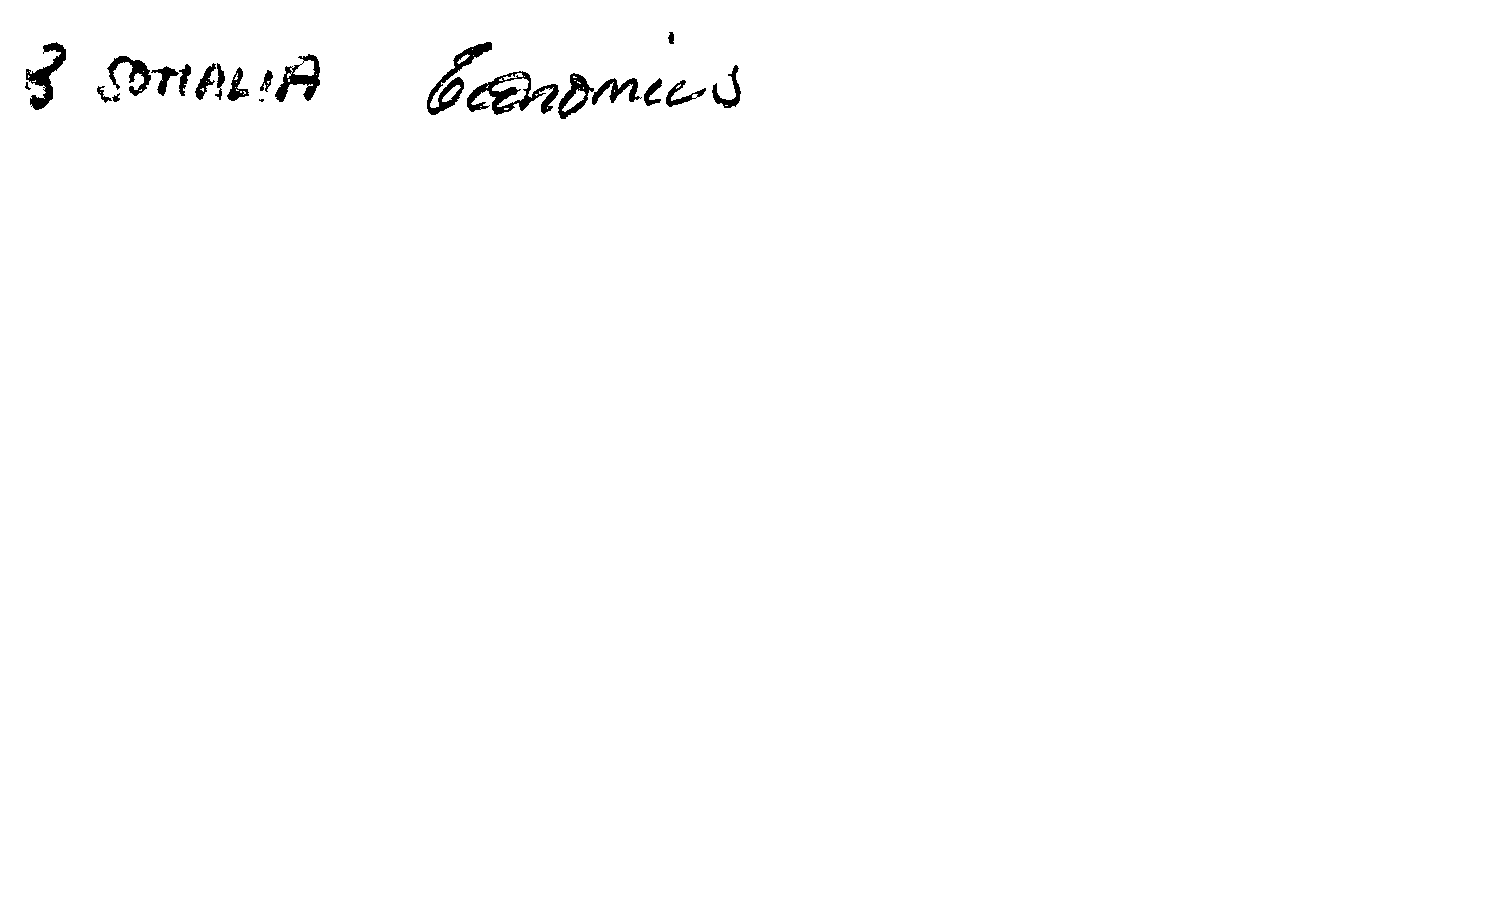 3 SOMALIA Economics